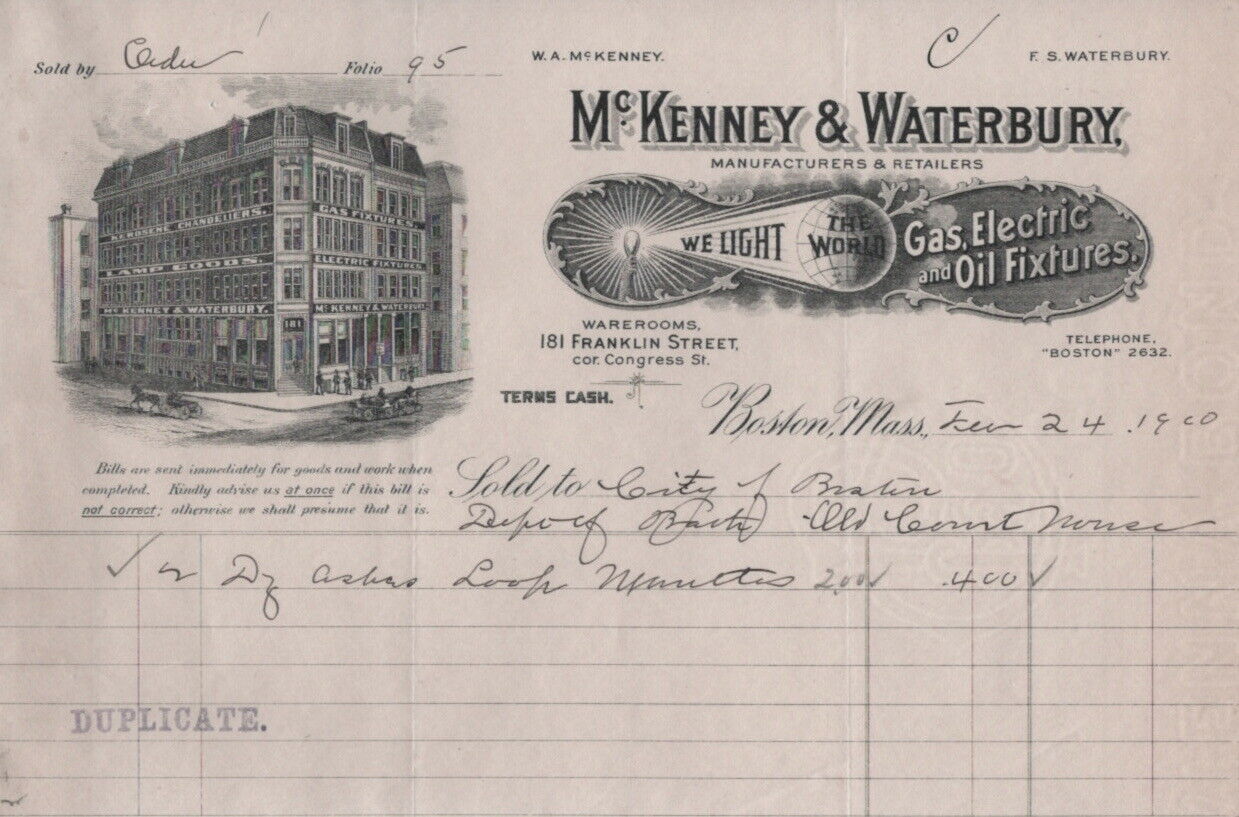 Sold by Order Folio 95
W. A. McKENNEY. F. S. WATERBURY.
McKENNEY & WATERBURY,
MANUFACTURERS & RETAILERS
WE LIGHT THE WORLD
Gas, Electric
and Oil Fixtures.
KEROSENE CHANDELIERS.
GAS FIXTURES.
LAMP GOODS.
ELECTRIC FIXTURES.
McKENNEY & WATERBURY.
McKENNEY & WATERBURY
181
WAREROOMS,
181 FRANKLIN STREET,
cor. Congress St.
TELEPHONE,
"BOSTON" 2632.
TERMS CASH.
Boston, Mass., Feb 24 1900
Bills are sent immediately for goods and work when
completed. Kindly advise us at once if this bill is
not correct; otherwise we shall presume that it is.
Sold to City of Boston
Dep of Old Court House
2 Dz Loop Mantles 2.00 4 00
DUPLICATE.